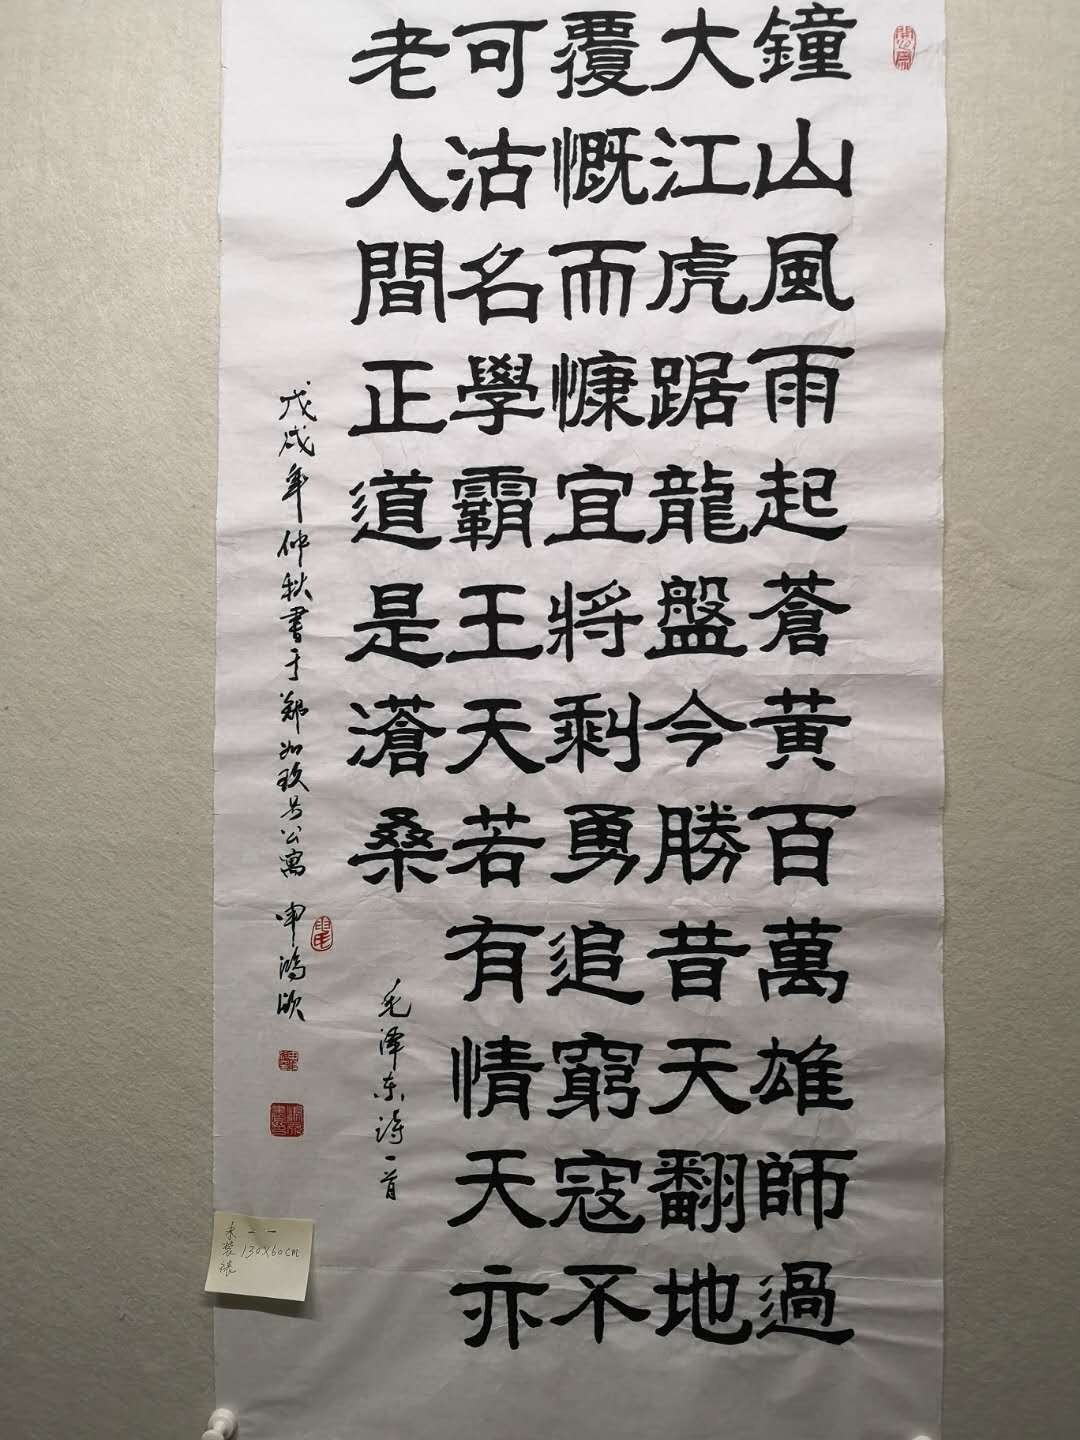 鐘山風雨起蒼黃百萬雄師過
大江虎踞龍盤今勝昔天翻地
覆慨而慷宜將剩勇追窮寇不
可沽名學霸王天若有情天亦
老人間正道是滄桑
毛泽东诗一首
戊戌年仲秋書于鄭州玖号公寓 申鴻欣
未装裱
二一
130X60cm